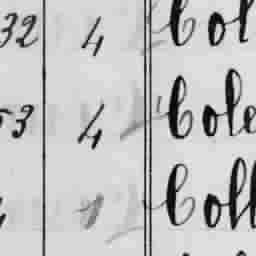 32 4 Col
53 4 Cole
1 Coll